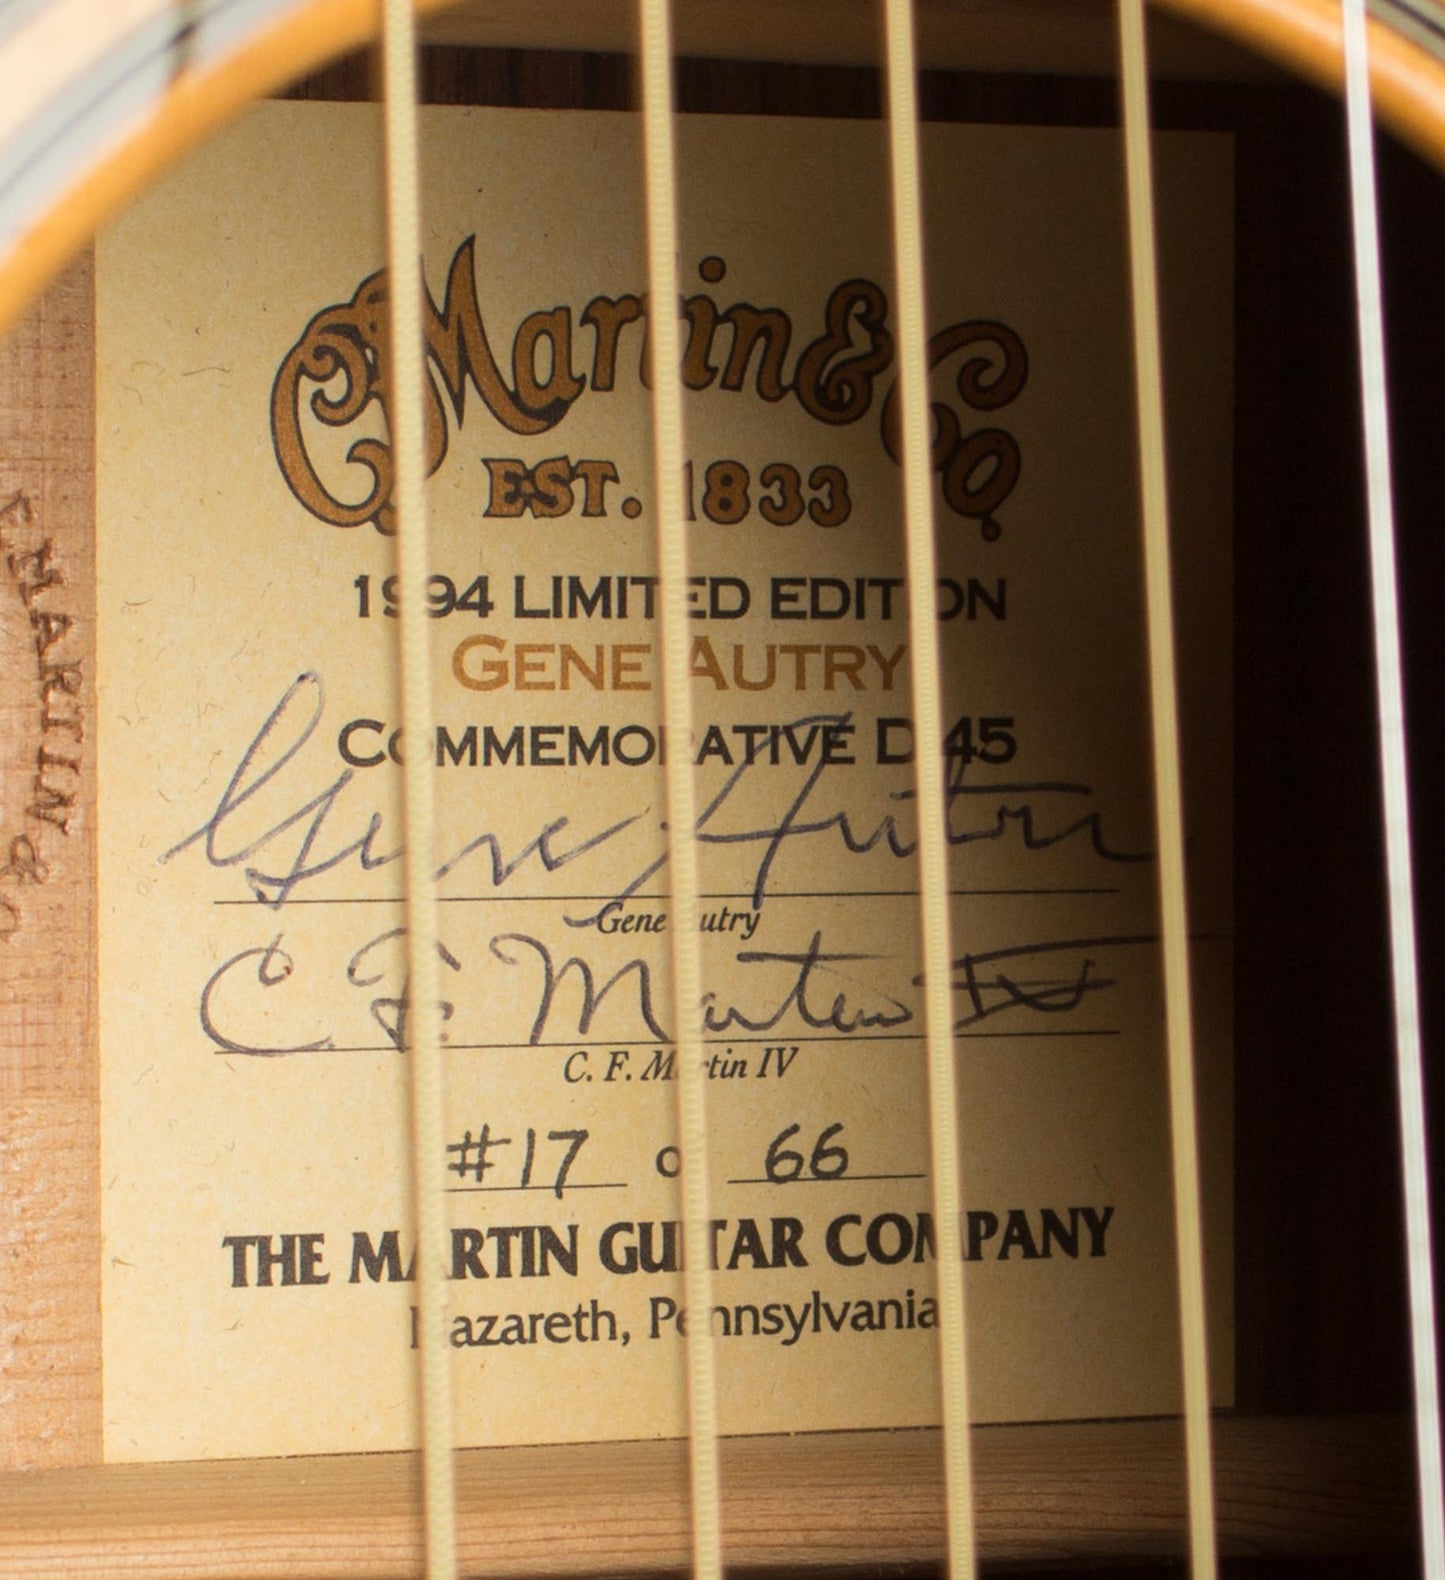 C.F. Martin & Co
EST. 1833
1994 LIMITED EDITION
GENE AUTRY
COMMEMORATIVE D-45
Gene Autry
Gene Autry
C. F. Martin IV
C. F. Martin IV
#17 of 66
THE MARTIN GUITAR COMPANY
Nazareth, Pennsylvania
MARTIN &